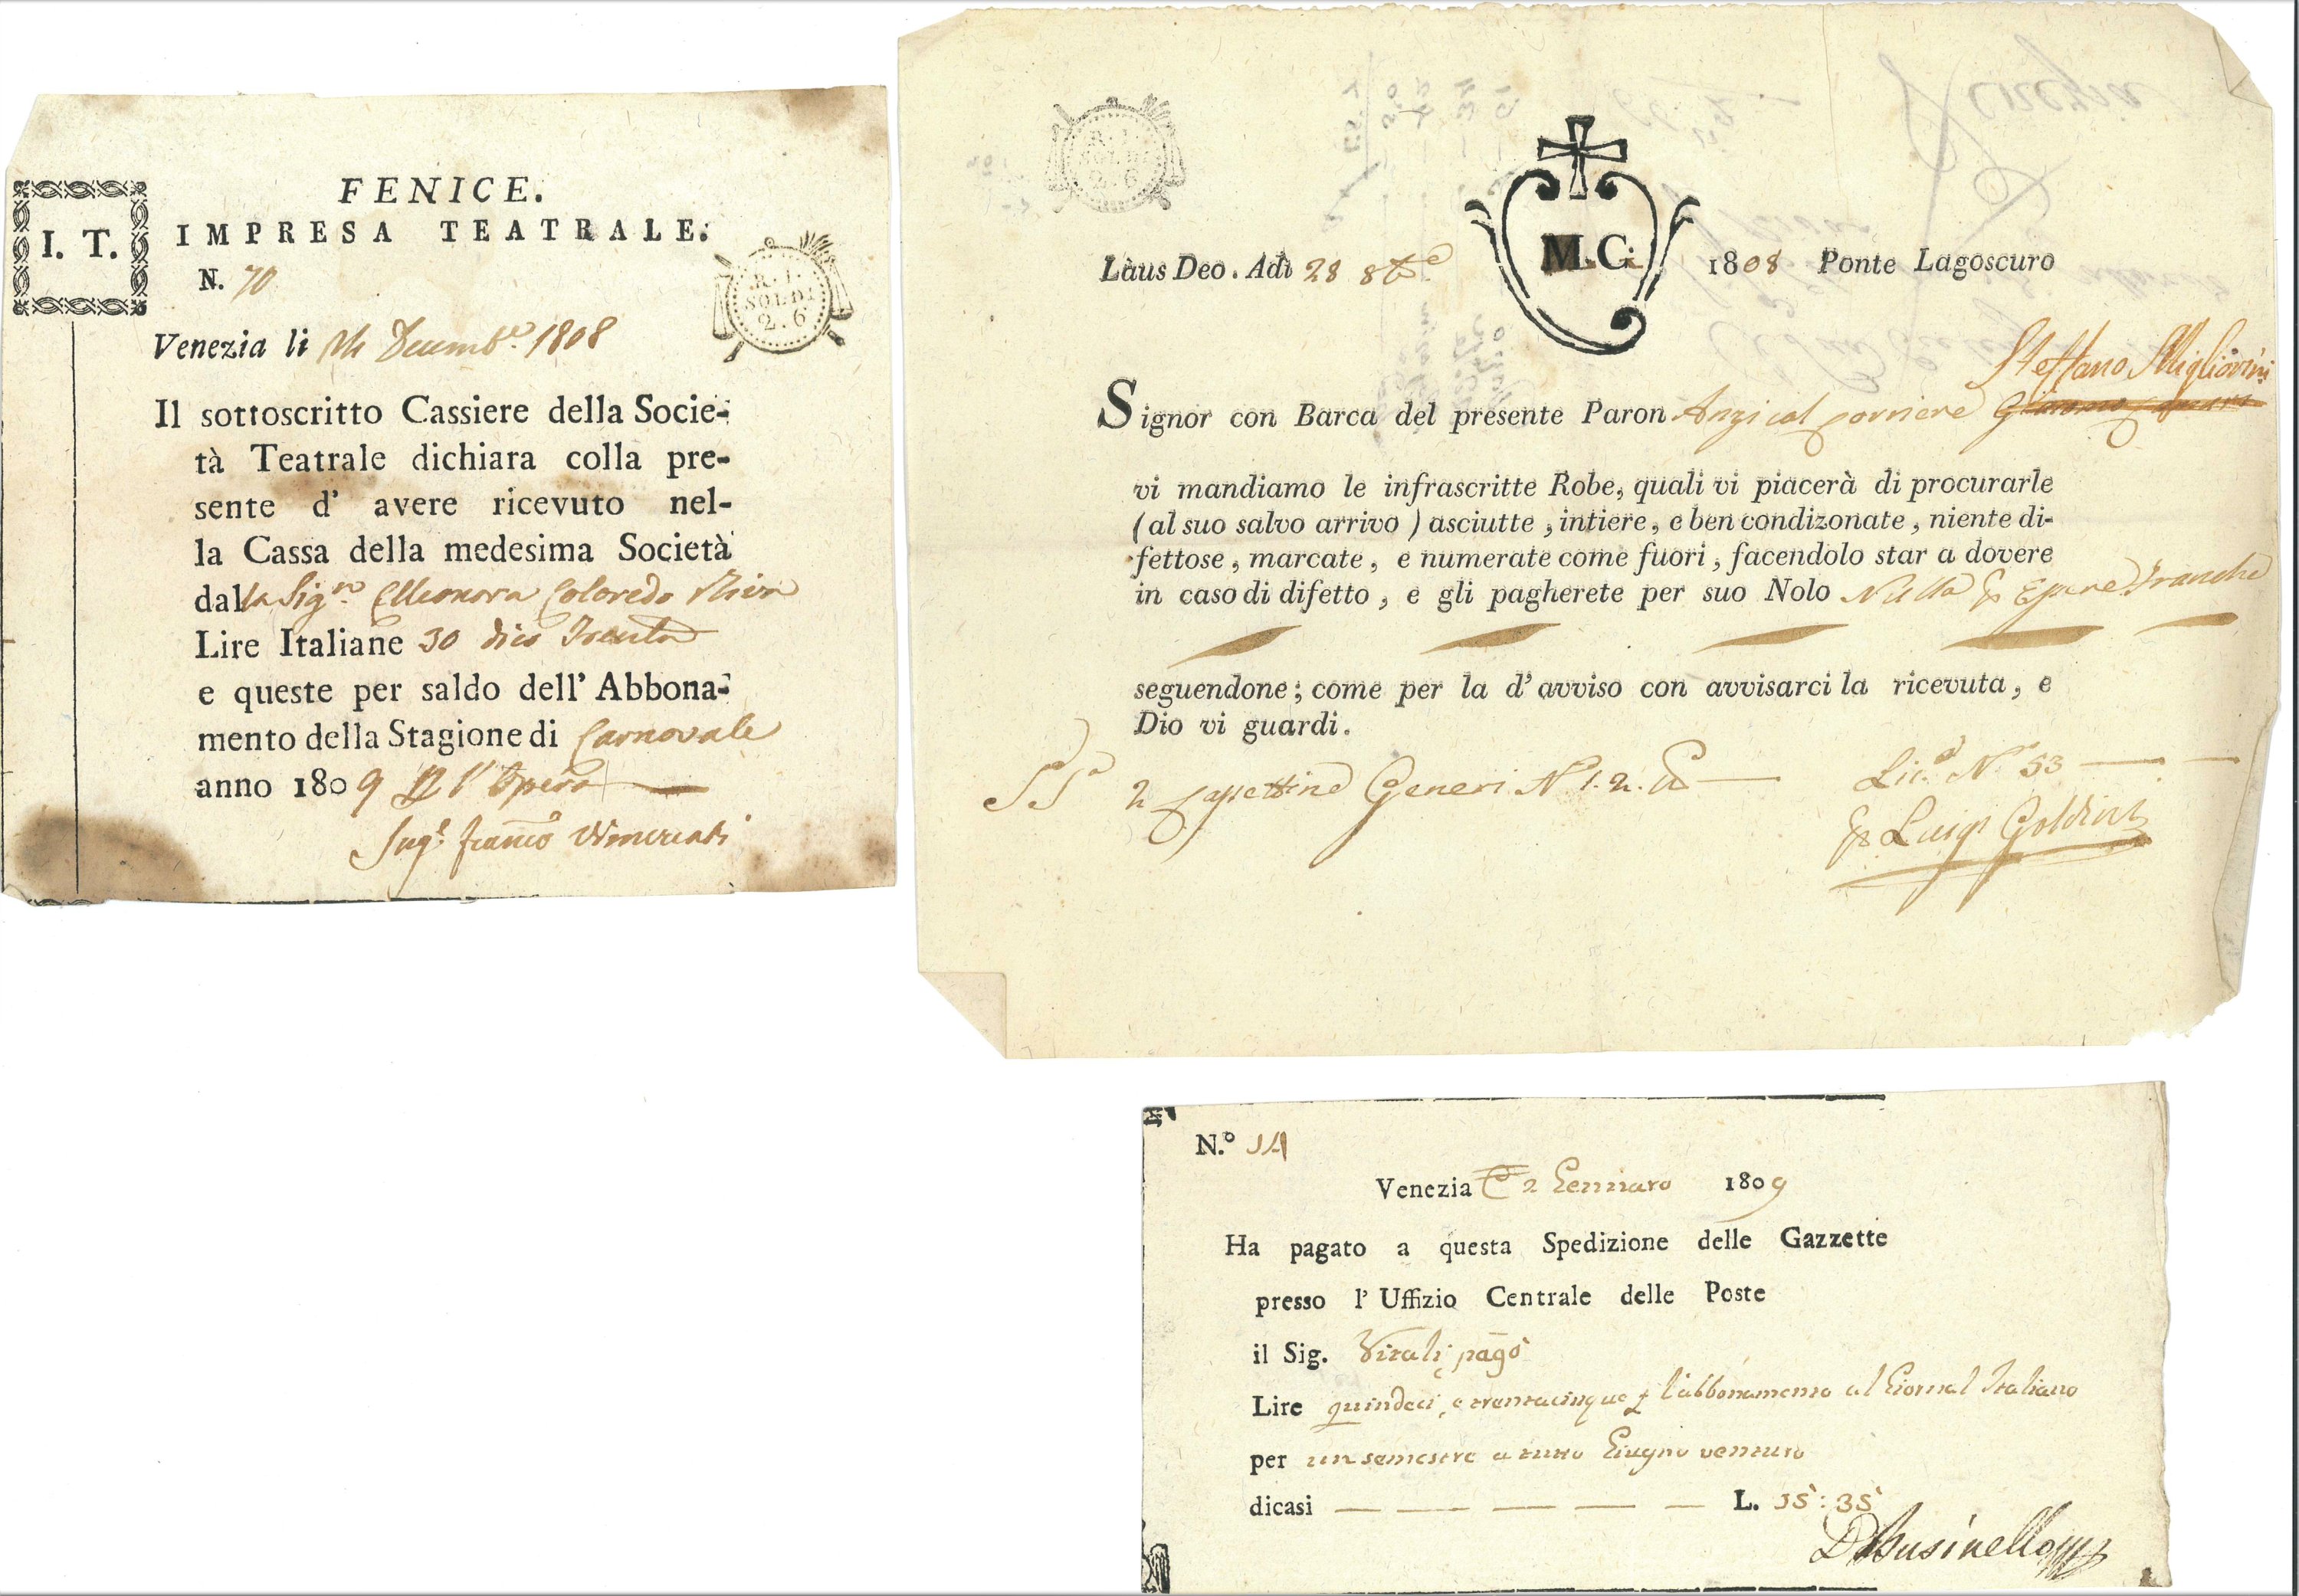 FENICE.
I. T.
IMPRESA TEATRALE.
N. 70
R. I.
SOLDI
2.6
Venezia li Decemb.e 1808
Il sottoscritto Cassiere della Socie-
tà Teatrale dichiara colla pre-
sente d' avere ricevuto nel-
la Cassa della medesima Società
dalla Sig.ra Elleonora Coloredo
Lire Italiane 30 dico Trenta
e queste per saldo dell' Abbona-
mento della Stagione di Carnovale
anno 1809 l'Opera
R. I.
SOLDI
2.6
M. C.
Làus Deo. Adì 28 8bre 1808 Ponte Lagoscuro
Steffano Migliorini
Signor con Barca del presente Paron Anzi col corriere Giacomo
vi mandiamo le infrascritte Robe, quali vi piacerà di procurarle
(al suo salvo arrivo) asciutte, intiere, e ben condizonate, niente di-
fettose, marcate, e numerate come fuori, facendolo star a dovere
in caso di difetto, e gli pagherete per suo Nolo Nulla Franche
seguendone; come per la d' avviso con avvisarci la ricevuta, e
Dio vi guardi.
2 Cassettine Generi N. 1. 2. Lic.a N. 53
Luigi Goldini
N.º 14
Venezia 2 Gennaro 1809
Ha pagato a questa Spedizione delle Gazzette
presso l' Uffizio Centrale delle Poste
il Sig. Vitali pagò
Lire quindeci, e trentacinque l'abbonamento al Giornal Italiano
per un semestre a tutto Giugno venturo
dicasi — — — — — L. 15:35
Businello